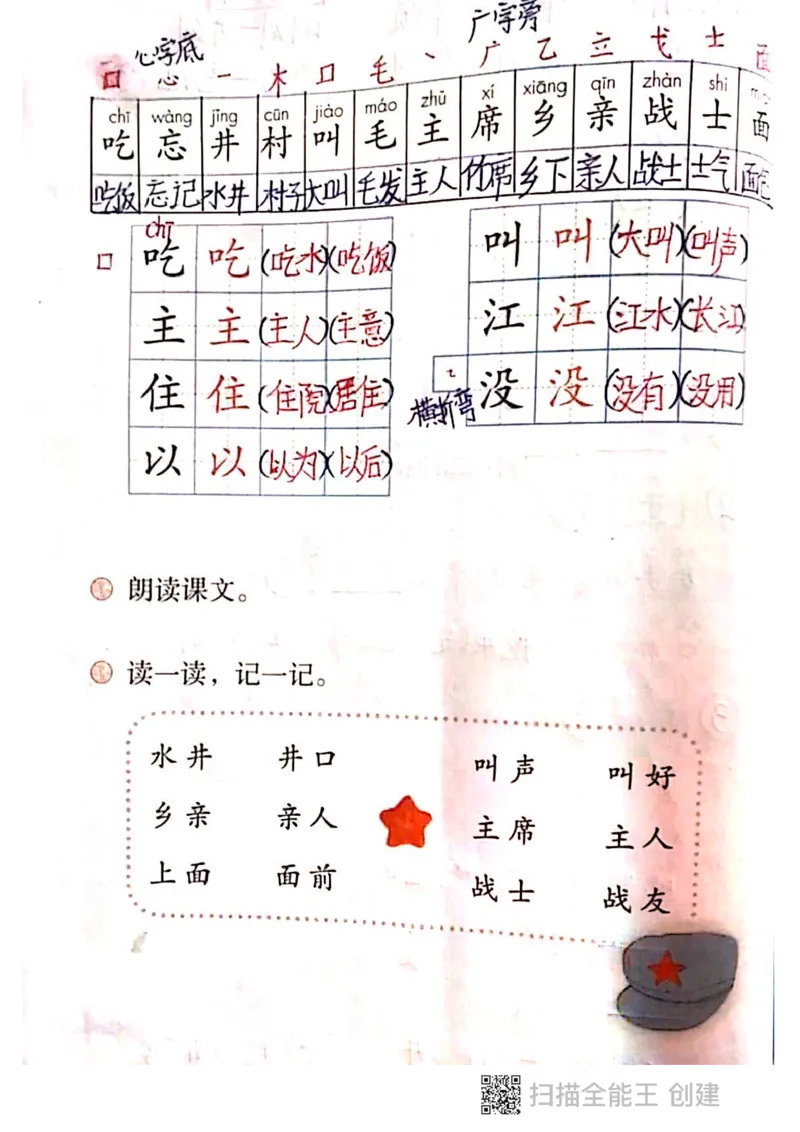 心字底 广字旁
口 心 一 木 口 毛 丶 广 乙 立 戈 士 面
chī wàng jǐng cūn jiào máo zhǔ xí xiāng qīn zhàn shì
吃 忘 井 村 叫 毛 主 席 乡 亲 战 士 面
吃饭 忘记 水井 村子 大叫 毛发 主人 竹席 乡下 亲人 战士 士气 面包
chī
口 吃 吃 (吃水)(吃饭) 叫 叫 (大叫)(叫声)
主 主 (主人)(主意) 江 江 (江水)(长江)
住 住 (住院)(居住) 没 没 (没有)(没用)
横折弯
以 以 (以为)(以后)
朗读课文。
读一读，记一记。
水井 井口 叫声 叫好
乡亲 亲人 主席 主人
上面 面前 战士 战友
扫描全能王 创建